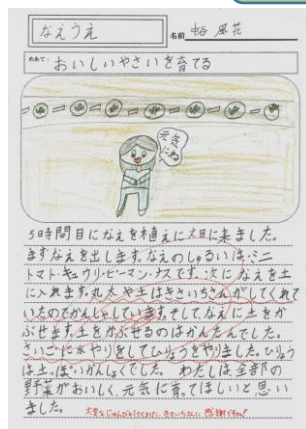 なえうえ
名前 風花
めあて: おいしいやさいを育てる
元気にね
5時間目になえを植えに火田に来ました。
まずなえを出します。なえのしゅるいは、ミニ
トマト・キュウリ・ピーマン・ナスです。次になえを土
に入れます。丸太や土はきさいちさんがしてくれて
いたのでかんしゃしています。そしてなえに土をか
ぶせます。土をかぶせるのはかんたんでした。
さいごに水やりをしてひりょうをやりました。ひりょう
は土っぽいかんしょくでした。 わたしは全部の
野菜がおいしく、元気に育ってほしいと思い
ました。
大変なじゅんびをしてくれた、きさいちさんに感謝ですね!